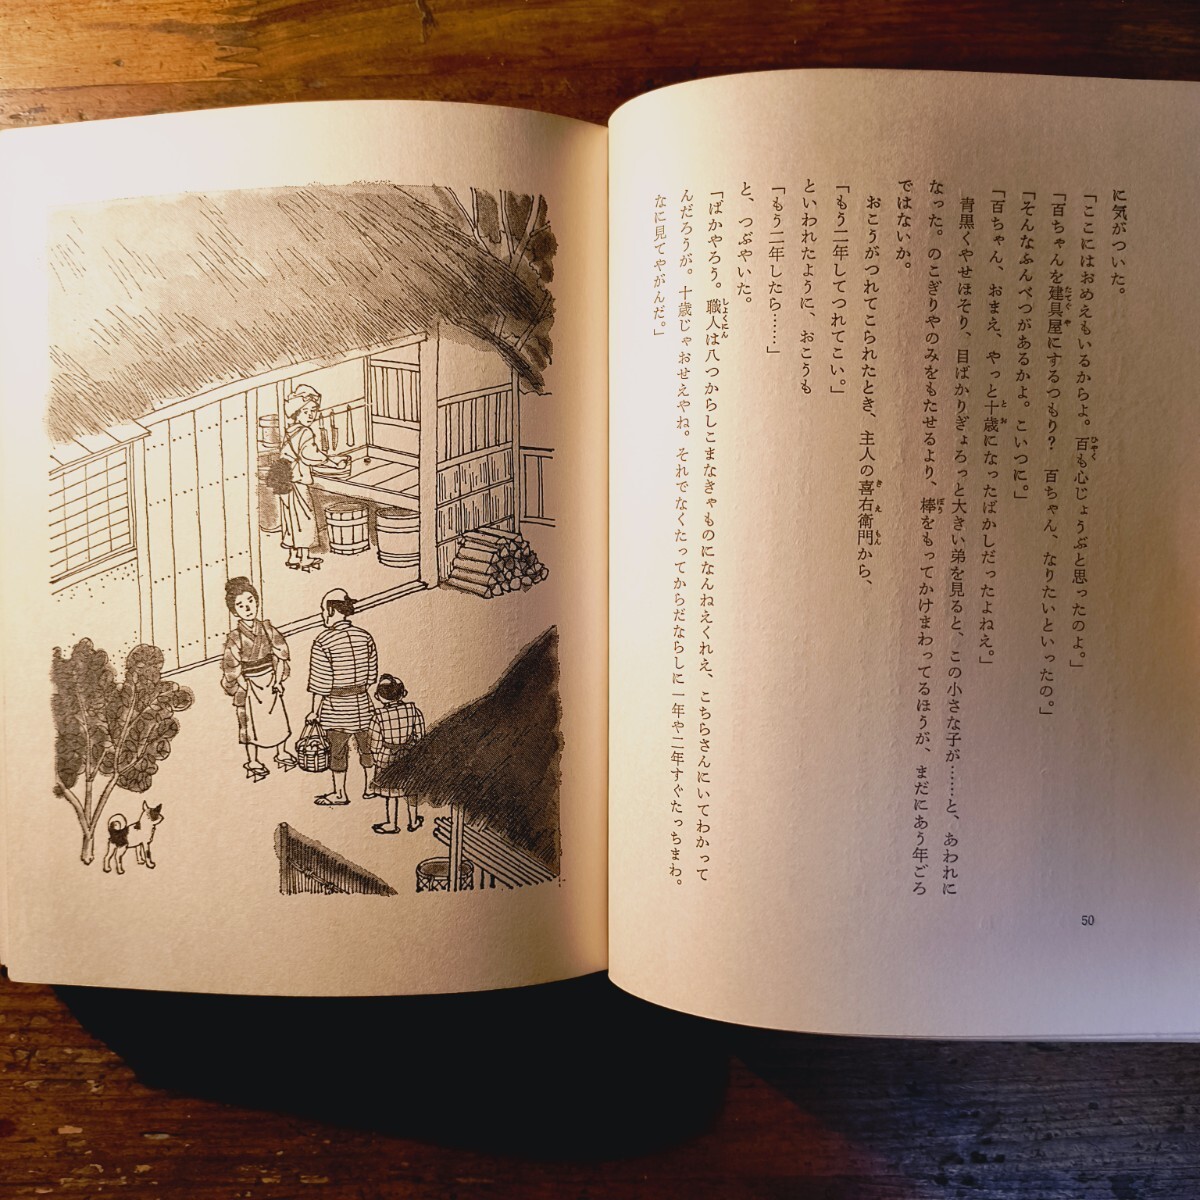 に気がついた。
「ここにはおめえもいるからよ。百も心じょうぶと思ったのよ。」
「百ちゃんを建具屋にするつもり？　百ちゃん、なりたいといったの。」
「そんなふんべつがあるかよ。こいつに。」
「百ちゃん、おまえ、やっと十歳になったばかしだったよねえ。」
青黒くやせほそり、目ばかりぎょろっと大きい弟を見ると、この小さな子が……と、あわれに
なった。のこぎりやのみをもたせるより、棒をもってかけまわってるほうが、まだにあう年ごろ
ではないか。
おこうがつれてこられたとき、主人の喜右衛門から、
「もう二年してつれてこい。」
といわれたように、おこうも
「もう二年したら……」
と、つぶやいた。
「ばかやろう。職人は八つからしこまなきゃものになんねえくれえ、こちらさんにいてわかって
んだろうが。十歳じゃおせえやね。それでなくたってからだならしに一年や二年すぐたっちまわ。
なに見てやがんだ。」
50